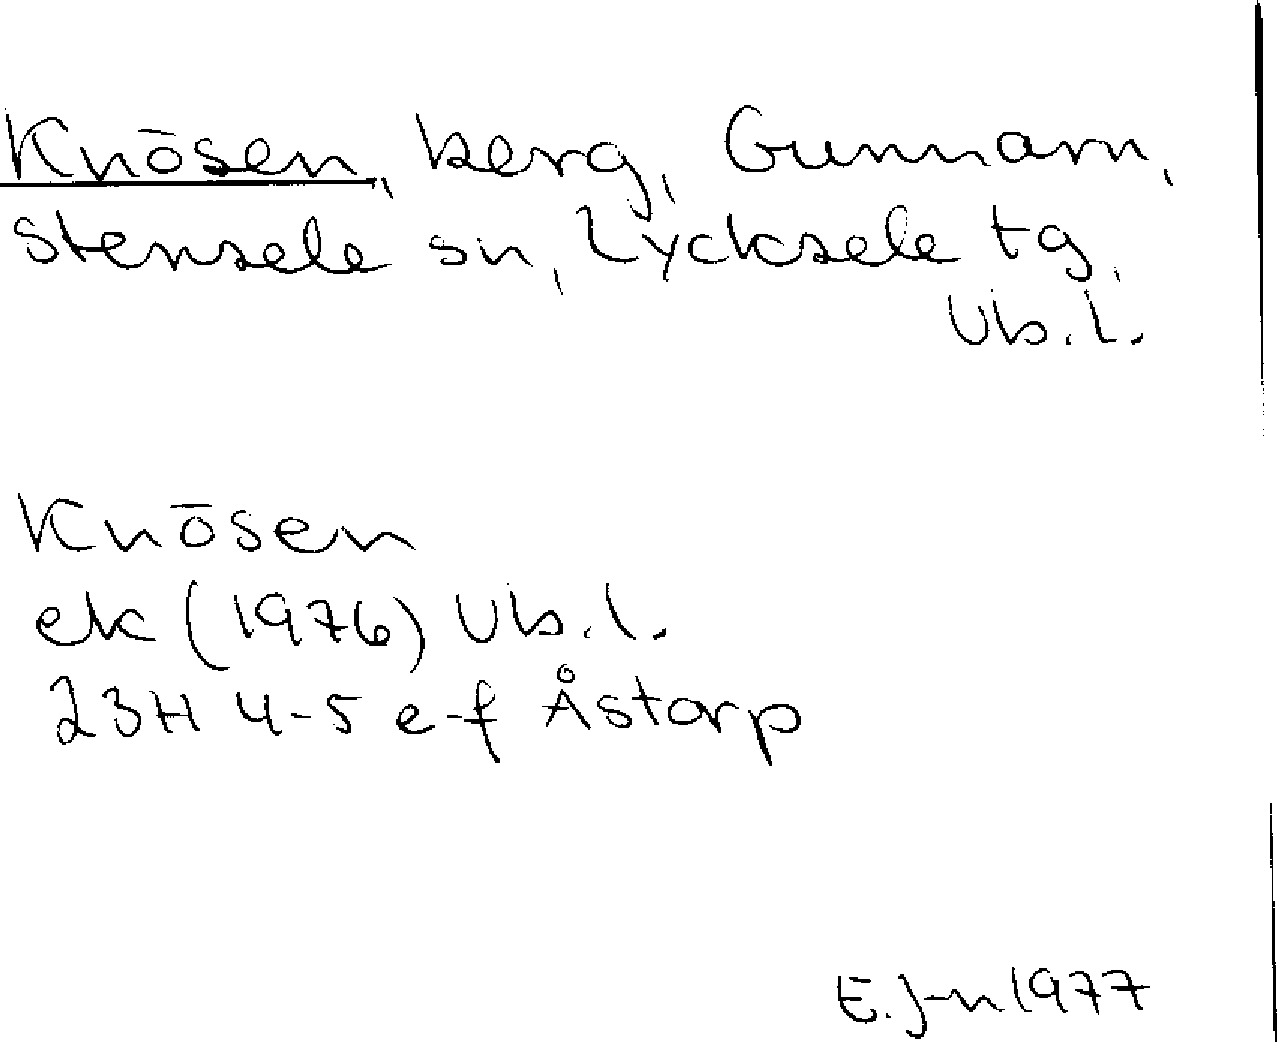 Knösen, berg, Gunnarn,
Stensele sn, Lycksele tg,
Vb.l.
Knösen
ek (1976) Vb.l.
23H 4-5 e-f Åstorp
E. J-n 1977